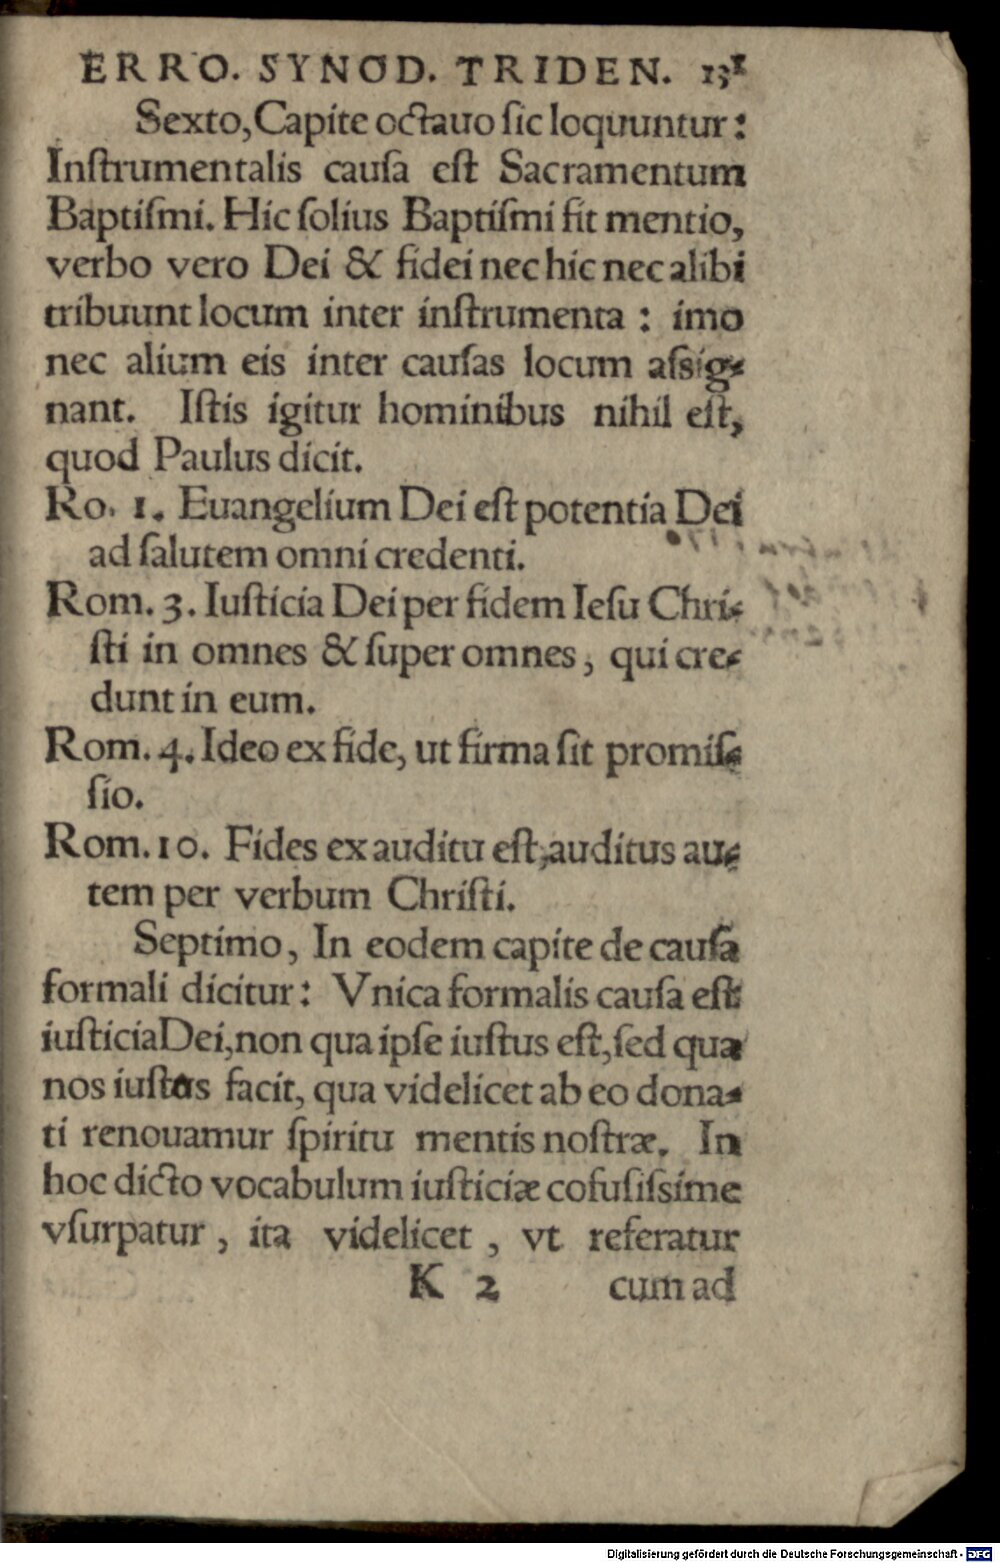 ERRO. SYNOD. TRIDEN. 131
Sexto, Capite octauo ſic loquuntur:
Inſtrumentalis cauſa eſt Sacramentum
Baptiſmi. Hic ſolius Baptiſmi fit mentio,
verbo vero Dei & fidei nec hic nec alibi
tribuunt locum inter inſtrumenta: imo
nec alium eis inter cauſas locum aſsig-
nant. Iſtis igitur hominibus nihil eſt,
quod Paulus dicit.
Ro. 1. Euangelium Dei eſt potentia Dei
ad ſalutem omni credenti.
Rom. 3. Iuſticia Dei per fidem Ieſu Chri-
ſti in omnes & ſuper omnes, qui cre-
dunt in eum.
Rom. 4. Ideo ex fide, ut firma ſit promiſ-
ſio.
Rom. 10. Fides ex auditu eſt, auditus au-
tem per verbum Chriſti.
Septimo, In eodem capite de cauſa
formali dicitur: Vnica formalis cauſa eſt
iuſticia Dei, non qua ipſe iuſtus eſt, ſed qua
nos iuſtos facit, qua videlicet ab eo dona-
ti renouamur ſpiritu mentis noſtræ. In
hoc dicto vocabulum iuſticiæ cofuſiſsime
vſurpatur, ita videlicet, vt referatur
K 2 cum ad
Digitalisierung gefördert durch die Deutsche Forschungsgemeinschaft - DFG